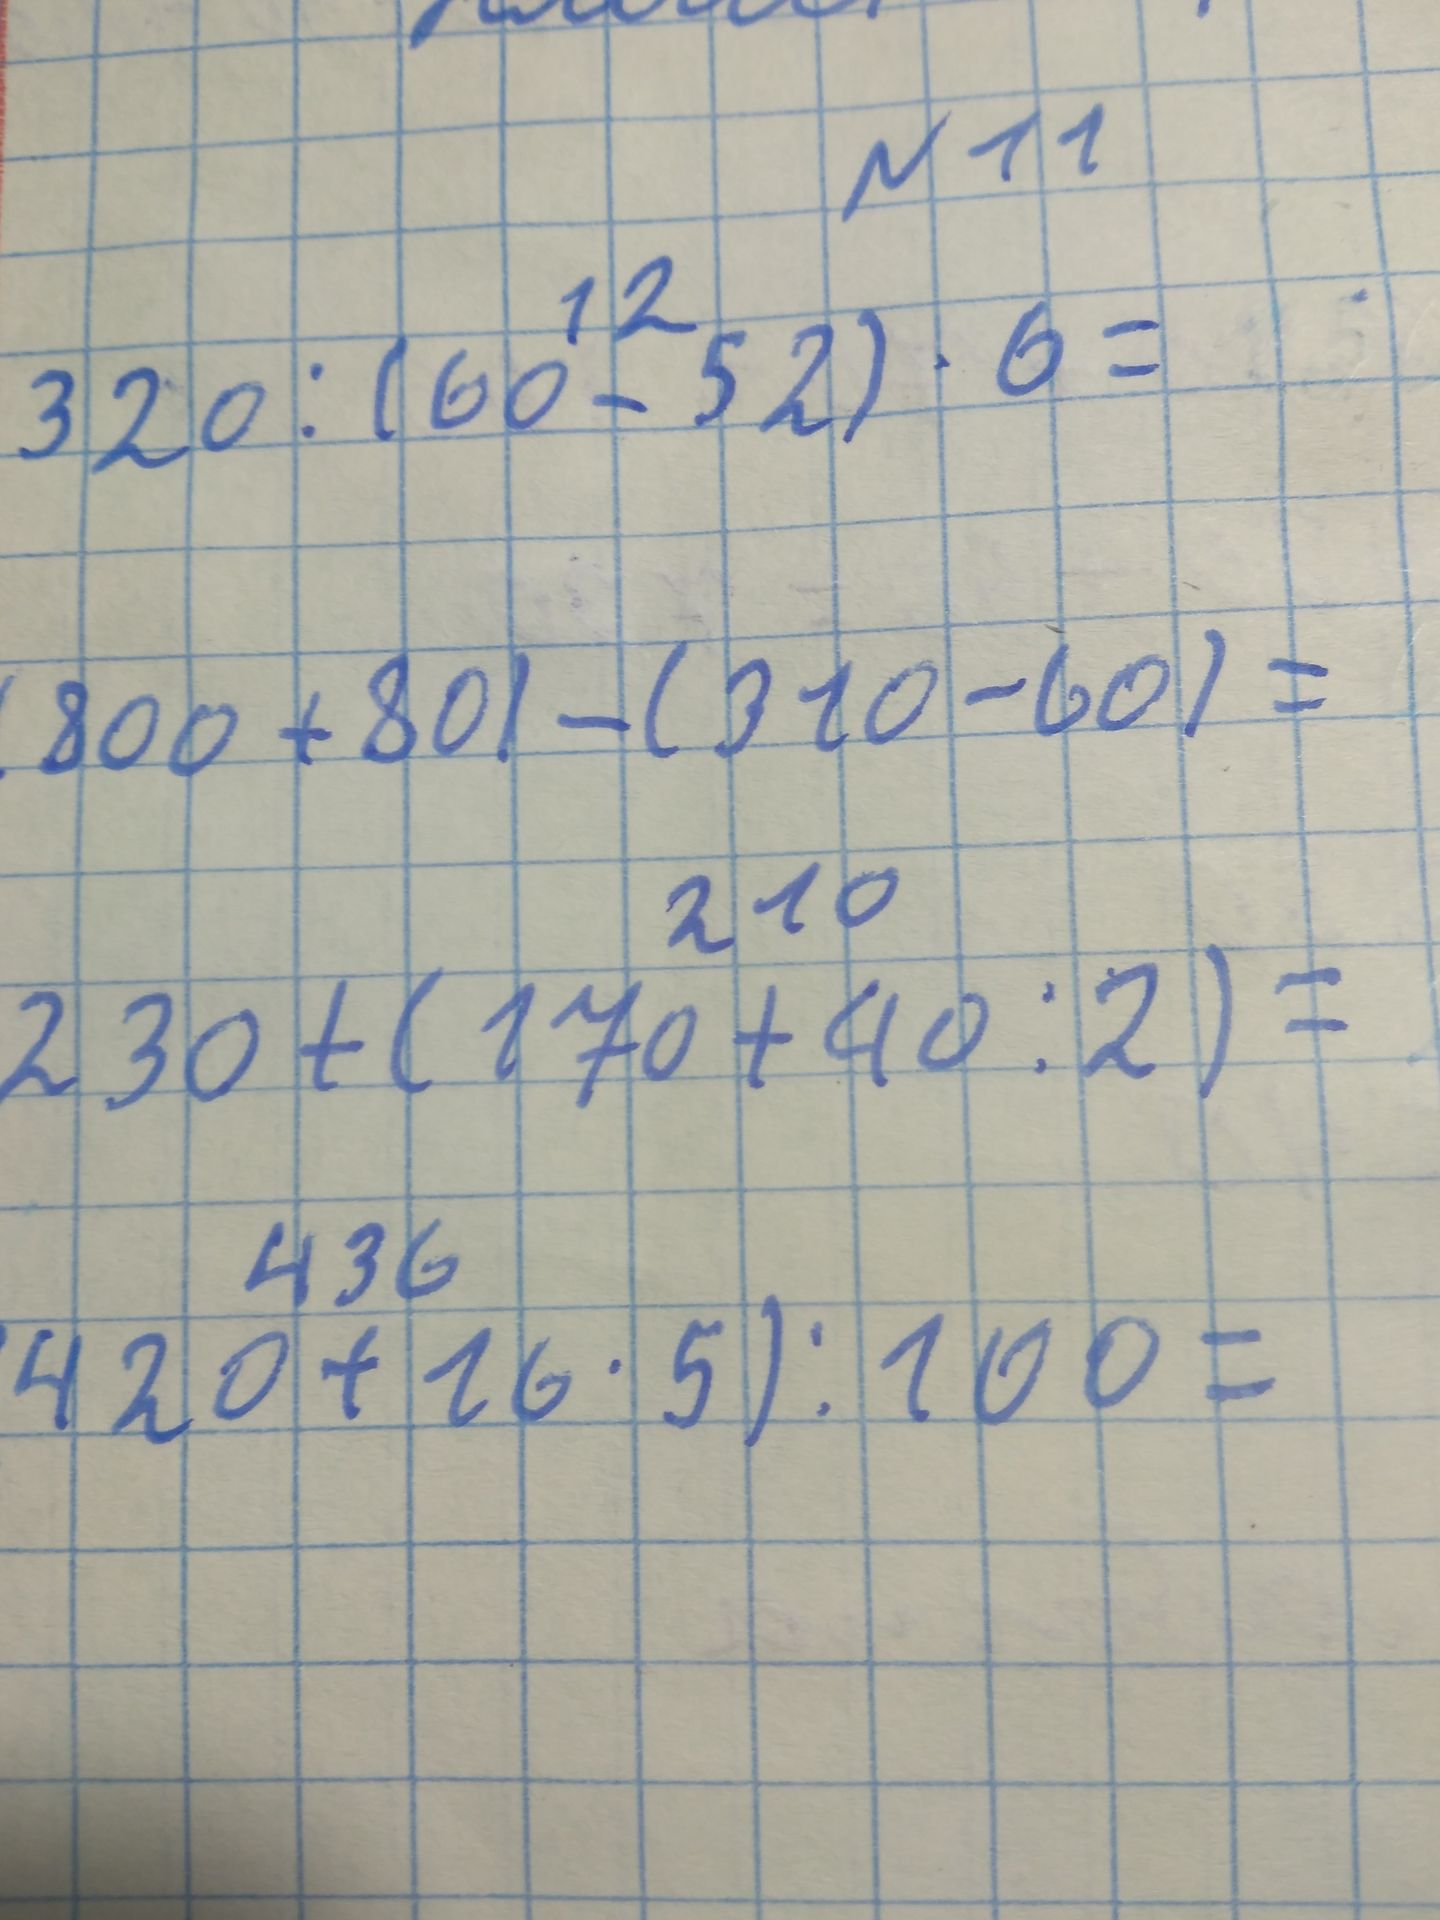 N 11
12
320 : (60 - 52) · 6 =
(800 + 80) - (310 - 60) =
210
230 + (170 + 40 : 2) =
436
(420 + 16 · 5) : 100 =